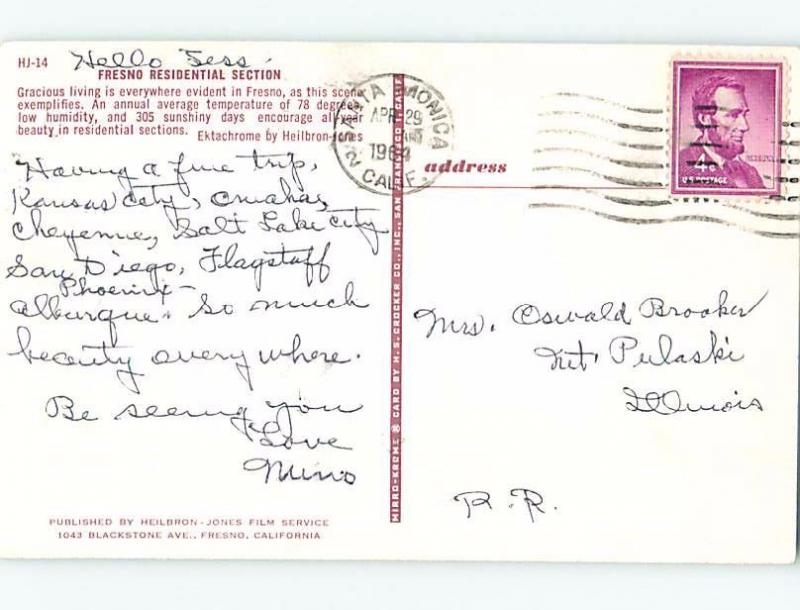 Hello Tess.
HJ-14
FRESNO RESIDENTIAL SECTION
Gracious living is everywhere evident in Fresno, as this scene
exemplifies. An annual average temperature of 78 degrees,
low humidity, and 305 sunshiny days encourage all-year
beauty in residential sections. Ektachrome by Heilbron-Jones
Having a fine trip,
Kansas City, Omaha,
Cheyenne, Salt Lake City
San Diego, Flagstaff
Phoenix -
Alburque. So much
beauty every where.
Be seeing you
Love
PUBLISHED BY HEILBRON-JONES FILM SERVICE
1043 BLACKSTONE AVE., FRESNO, CALIFORNIA
MIRRO-KROME ® CARD BY H.S. CROCKER CO., INC., SAN FRANCISCO 1, CALIF.
SANTA MONICA
APR 29
CALIF.
address
U.S. POSTAGE
Mrs. Oswald Brooker
Mt. Pulaski
Illinois
R.R.